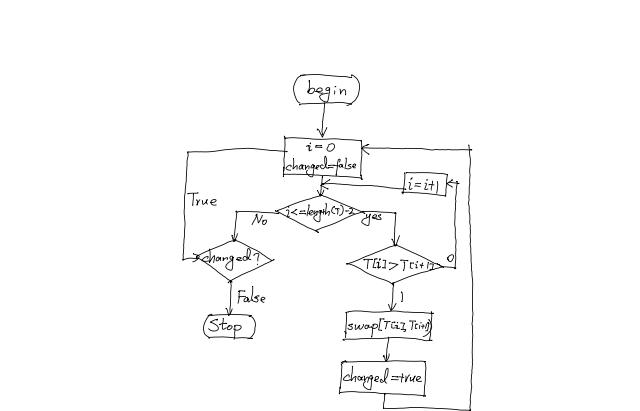 begin
i=0
changed=false
i=i+1
True
No
i<=length(T)-2
yes
changed?
T[i]>T[i+1]
0
False
1
Stop
swap[T[i],T[i+1])
changed=true